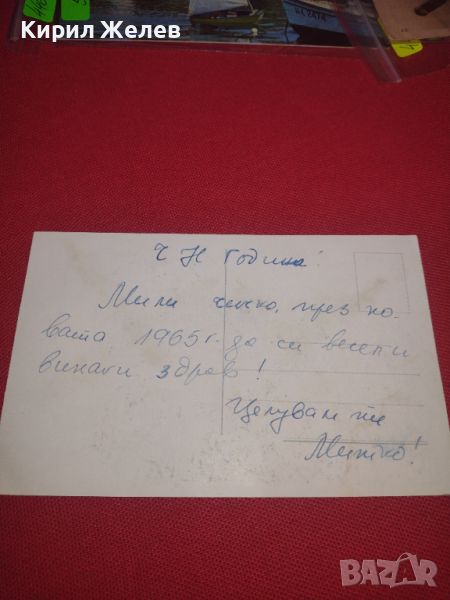 Кирил Желев
Ч Н Година!
Мили чичко, през но-
вата 1965г. да си весел и
винаги здрав!
Целувам те
Митко!
BAZAR